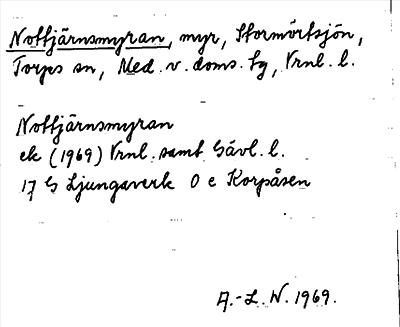 Nottjärnsmyran, myr, Stormörtsjön,
Torps sn, Med. v. doms. tg, Vrnl. l.
Nottjärnsmyran
ek (1969) Vrnl. samt Gävl. l.
17 G Ljungaverk 0 e Korpåsen
A.-L. N. 1969.